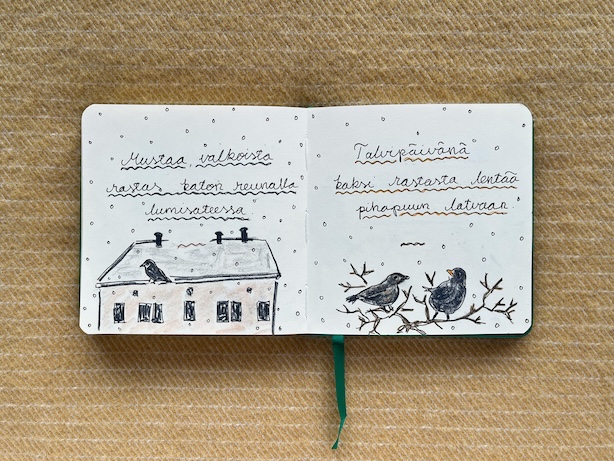 Mustaa, valkoista
rastas katon reunalla
lumisateessa
Talvipäivänä
kaksi rastasta lentää
pihapuun latvaan